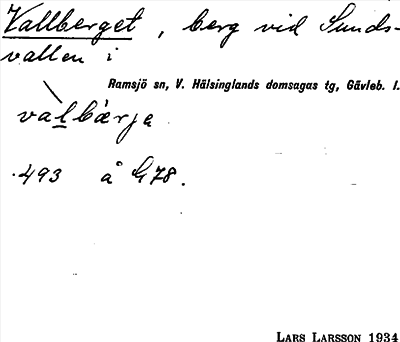 Vallberget, berg vid Sunds-
vallen i
Ramsjö sn, V. Hälsinglands domsagas tg, Gävleb. l.
valbärja
493 å G78.
LARS LARSSON 1934